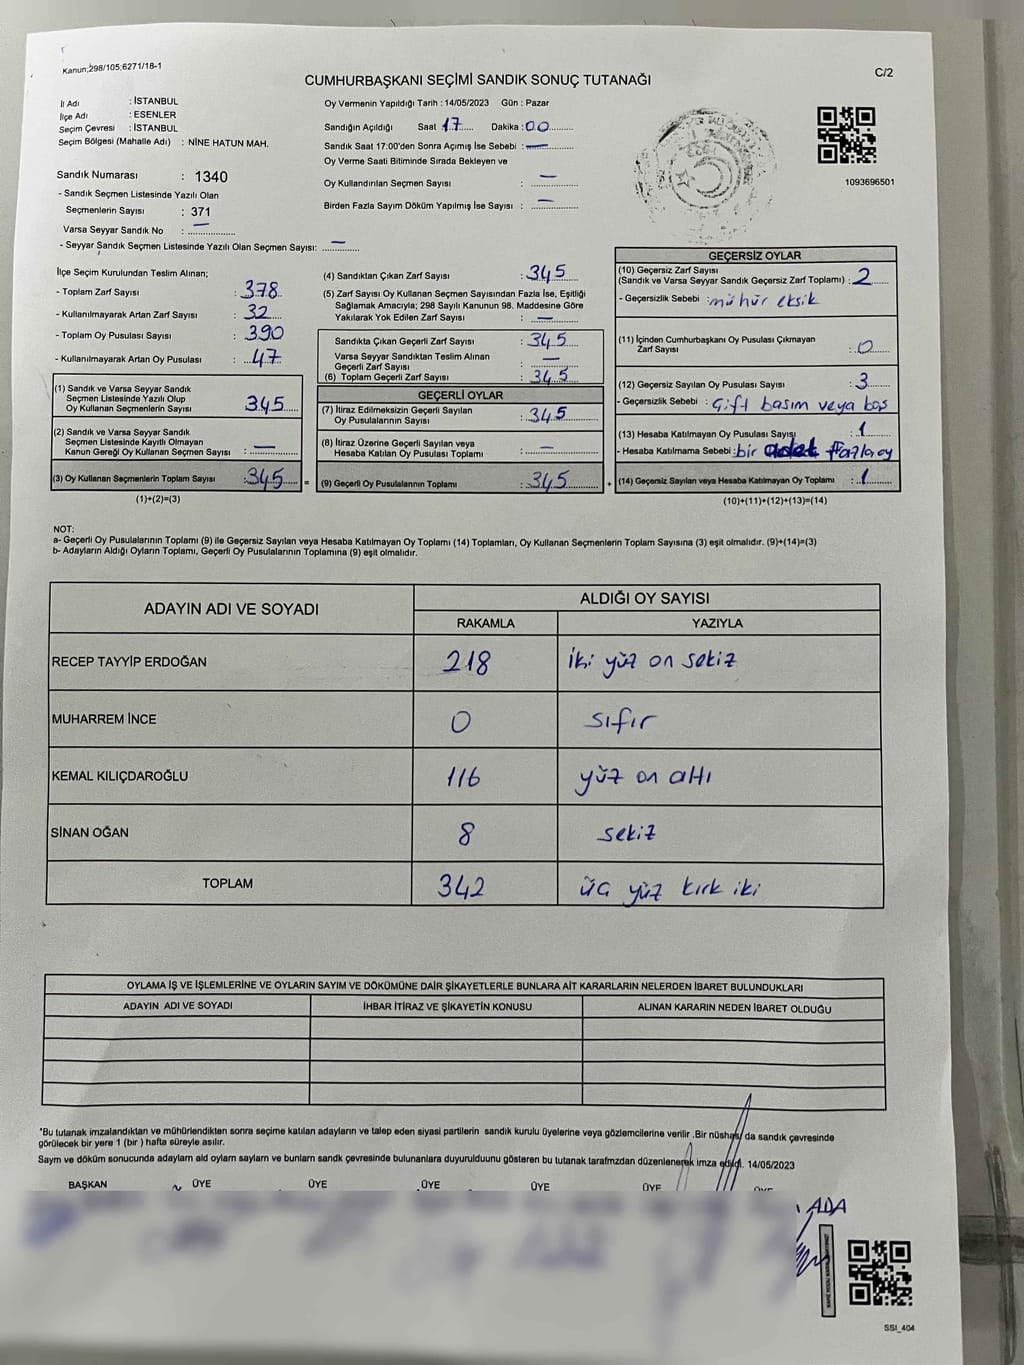 Kanun;298/105;6271/18-1
C/2
CUMHURBAŞKANI SEÇİMİ SANDIK SONUÇ TUTANAĞI
İl Adı : İSTANBUL
İlçe Adı : ESENLER
Seçim Çevresi : İSTANBUL
Seçim Bölgesi (Mahalle Adı) : NİNE HATUN MAH.
Sandık Numarası : 1340
- Sandık Seçmen Listesinde Yazılı Olan
Seçmenlerin Sayısı : 371
Varsa Seyyar Sandık No : —
- Seyyar Sandık Seçmen Listesinde Yazılı Olan Seçmen Sayısı: —
Oy Vermenin Yapıldığı Tarih : 14/05/2023 Gün : Pazar
Sandığın Açıldığı Saat 17 Dakika : 00
Sandık Saat 17:00'den Sonra Açılmış İse Sebebi : —
Oy Verme Saati Bitiminde Sırada Bekleyen ve
Oy Kullandırılan Seçmen Sayısı : —
Birden Fazla Sayım Döküm Yapılmış İse Sayısı : —
1093696501
İlçe Seçim Kurulundan Teslim Alınan;
- Toplam Zarf Sayısı : 378
- Kullanılmayarak Artan Zarf Sayısı : 32
- Toplam Oy Pusulası Sayısı : 390
- Kullanılmayarak Artan Oy Pusulası : 47
(1) Sandık ve Varsa Seyyar Sandık
Seçmen Listesinde Yazılı Olup
Oy Kullanan Seçmenlerin Sayısı 345
(2) Sandık ve Varsa Seyyar Sandık
Seçmen Listesinde Kayıtlı Olmayan
Kanun Gereği Oy Kullanan Seçmen Sayısı : —
(3) Oy Kullanan Seçmenlerin Toplam Sayısı : 345
(1)+(2)=(3)
(4) Sandıktan Çıkan Zarf Sayısı : 345
(5) Zarf Sayısı Oy Kullanan Seçmen Sayısından Fazla İse, Eşitliği
Sağlamak Amacıyla; 298 Sayılı Kanunun 98. Maddesine Göre
Yakılarak Yok Edilen Zarf Sayısı : —
Sandıkta Çıkan Geçerli Zarf Sayısı : 345
Varsa Seyyar Sandıktan Teslim Alınan
Geçerli Zarf Sayısı : —
(6) Toplam Geçerli Zarf Sayısı : 345
GEÇERLİ OYLAR
(7) İtiraz Edilmeksizin Geçerli Sayılan
Oy Pusulalarının Sayısı : 345
(8) İtiraz Üzerine Geçerli Sayılan veya
Hesaba Katılan Oy Pusulası Toplamı : —
= (9) Geçerli Oy Pusulalarının Toplamı : 345 +
GEÇERSİZ OYLAR
(10) Geçersiz Zarf Sayısı
(Sandık ve Varsa Seyyar Sandık Geçersiz Zarf Toplamı) : 2
- Geçersizlik Sebebi : mühür eksik
(11) İçinden Cumhurbaşkanı Oy Pusulası Çıkmayan
Zarf Sayısı : 0
(12) Geçersiz Sayılan Oy Pusulası Sayısı : 3
- Geçersizlik Sebebi : Çift basım veya boş
(13) Hesaba Katılmayan Oy Pusulası Sayısı : 1
- Hesaba Katılmama Sebebi : bir adet fazla oy
(14) Geçersiz Sayılan veya Hesaba Katılmayan Oy Toplamı : 1
(10)+(11)+(12)+(13)=(14)
NOT:
a- Geçerli Oy Pusulalarının Toplamı (9) ile Geçersiz Sayılan veya Hesaba Katılmayan Oy Toplamı (14) Toplamları, Oy Kullanan Seçmenlerin Toplam Sayısına (3) eşit olmalıdır. (9)+(14)=(3)
b- Adayların Aldığı Oyların Toplamı, Geçerli Oy Pusulalarının Toplamına (9) eşit olmalıdır.
ADAYIN ADI VE SOYADI ALDIĞI OY SAYISI
RAKAMLA YAZIYLA
RECEP TAYYİP ERDOĞAN 218 iki yüz on sekiz
MUHARREM İNCE 0 sıfır
KEMAL KILIÇDAROĞLU 116 yüz on altı
SİNAN OĞAN 8 sekiz
TOPLAM 342 üç yüz kırk iki
OYLAMA İŞ VE İŞLEMLERİNE VE OYLARIN SAYIM VE DÖKÜMÜNE DAİR ŞİKAYETLERLE BUNLARA AİT KARARLARIN NELERDEN İBARET BULUNDUKLARI
ADAYIN ADI VE SOYADI İHBAR İTİRAZ VE ŞİKAYETİN KONUSU ALINAN KARARIN NEDEN İBARET OLDUĞU
*Bu tutanak imzalandıktan ve mühürlendikten sonra seçime katılan adayların ve talep eden siyasi partilerin sandık kurulu üyelerine veya gözlemcilerine verilir .Bir nüshası da sandık çevresinde
görülecek bir yere 1 (bir ) hafta süreyle asılır.
Saym ve döküm sonucunda adaylarn ald oylarn saylarn ve bunlarn sandk çevresinde bulunanlara duyurulduunu gösteren bu tutanak tarafmzdan düzenlenerek imza edildi. 14/05/2023
BAŞKAN ÜYE ÜYE ÜYE ÜYE ÜYE ÜYE
ADA
SSI_404